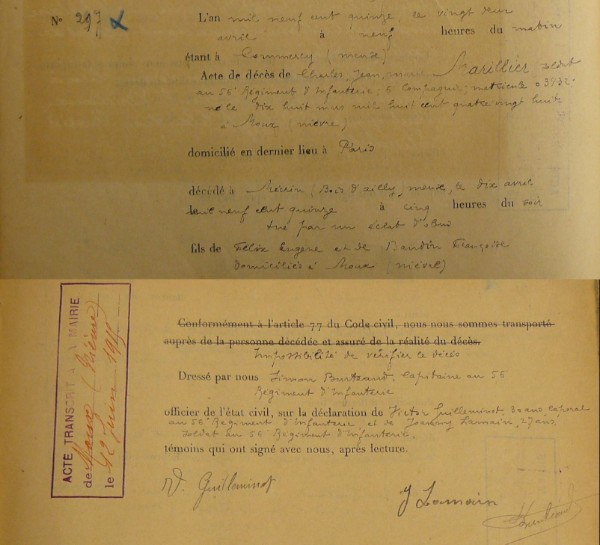 N° 297 x
L'an mil neuf cent quinze, le vingt deux
avril à neuf heures du matin
étant à Commercy (meuse)
Acte de décès de Charles, Jean, marie Marillier soldat
au 56e Régiment d'Infanterie, 6 Compagnie; matricule = 3982
né le dix huit mars mil huit cent quatre vingt huit
à Moux (nièvre)
domicilié en dernier lieu à Paris
décédé à (Bois d'ailly, meuse, le dix avril
mil neuf cent quinze à cinq heures du soir
tué par un éclat d'obus
fils de Félix Eugène et de Baudin Françoise
domiciliés à Moux (nièvre)
Conformément à l'article 77 du Code civil, nous nous sommes transporté
auprès de la personne décédée et assuré de la réalité du décès.
Impossibilité de vérifier le décès
Dressé par nous Simon Capitaine au 56
Régiment d'Infanterie
officier de l'état civil, sur la déclaration de Victor Guilleminot, caporal
au 56e Régiment d'Infanterie et de Lamain, 27 ans
soldat au 56e Régiment d'Infanterie.
témoins qui ont signé avec nous, après lecture.
V. Guilleminot
J Lamain
ACTE TRANSCRIT A LA MAIRIE
de Moux (Nièvre)
le juin 1915